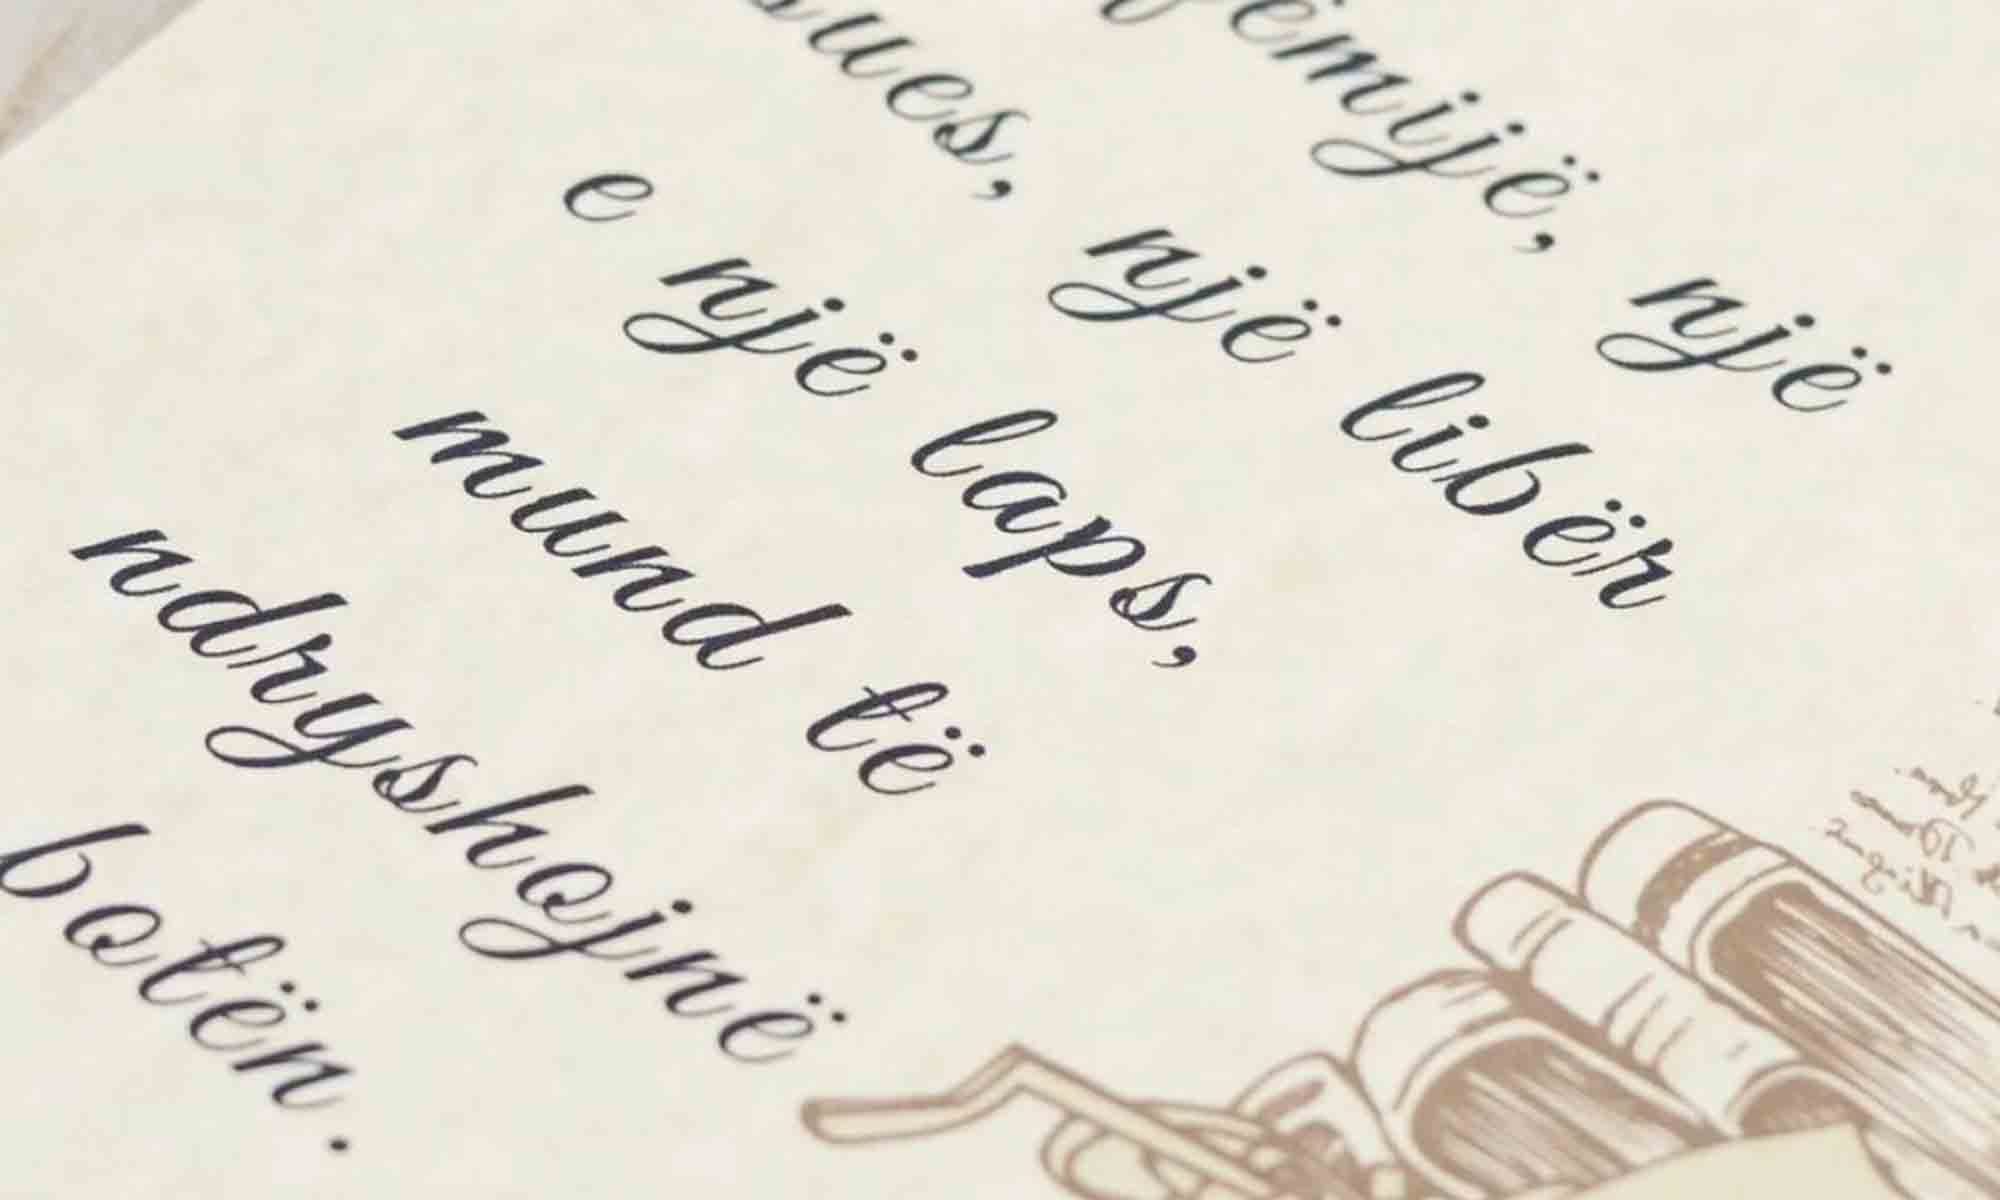 fëmijë, një
sues, një libër
e një laps,
mund të
ndryshojnë
botën.